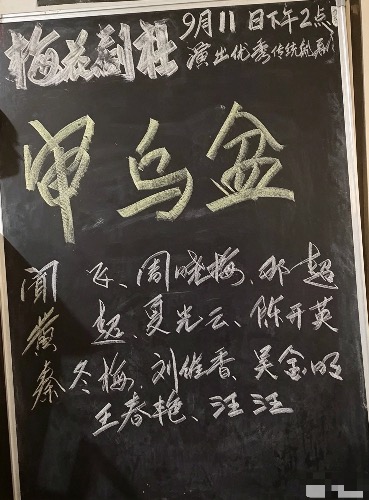 梅花剧社
9月11日下午2点
演出优秀传统剧
申乌盆
闻飞、周晓梅、邓超
黄超、夏光云、陈开英
秦冬梅、刘维香、吴金明
王春艳、汪汪